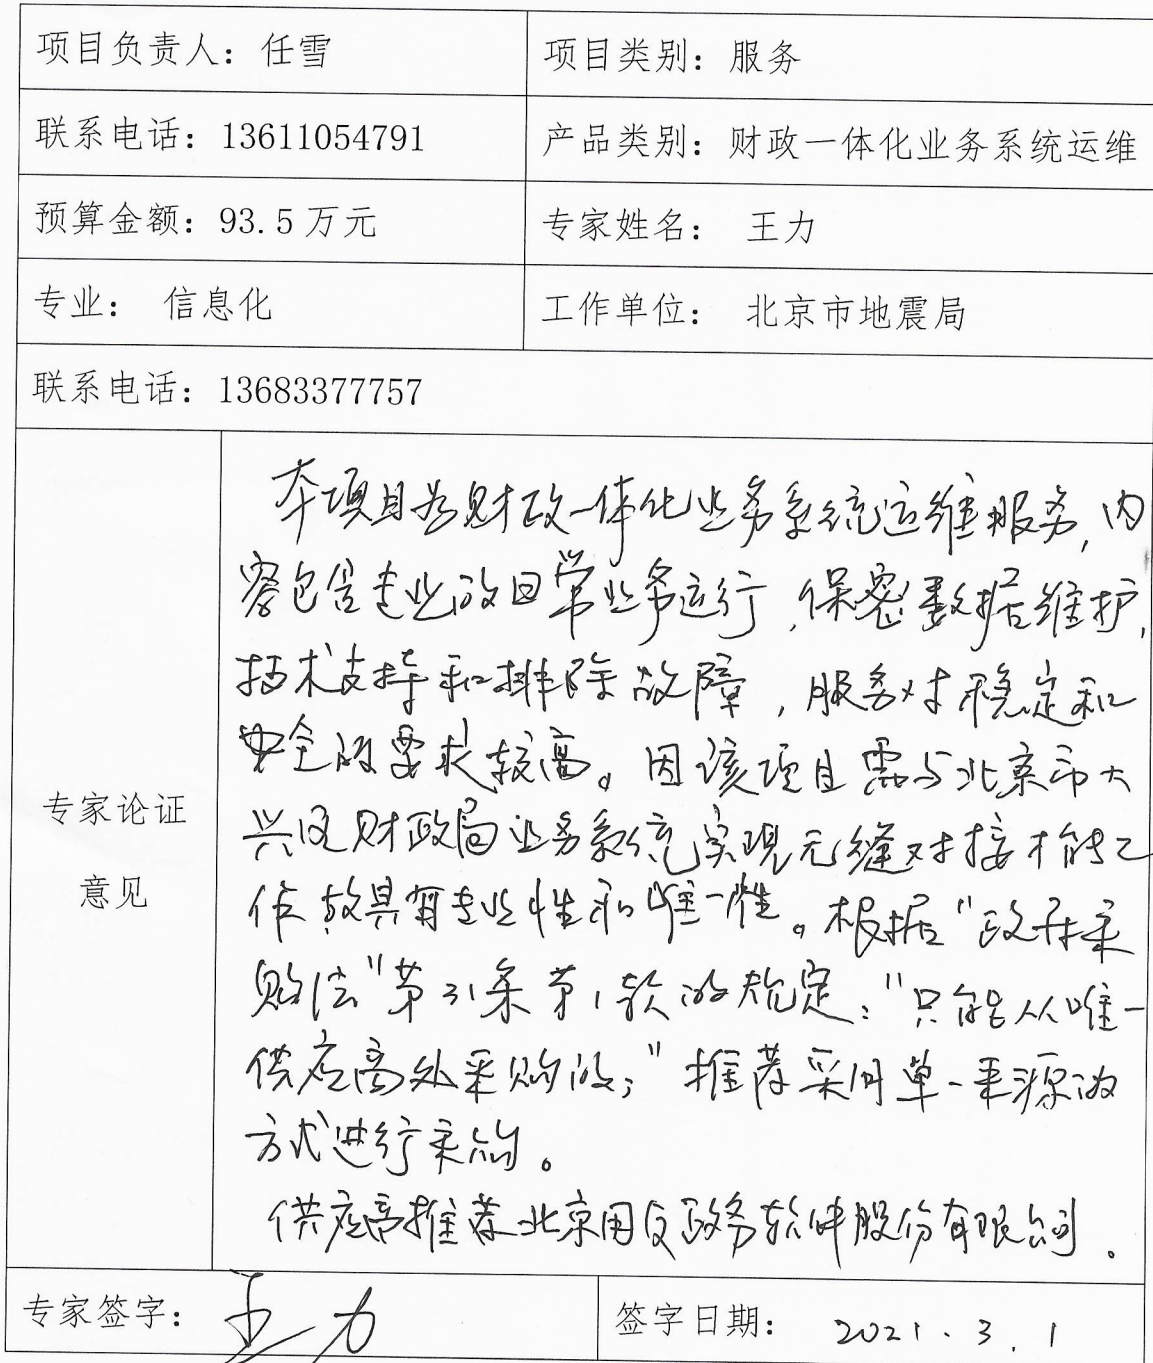 项目负责人：任雪
项目类别：服务
联系电话：13611054791
产品类别：财政一体化业务系统运维
预算金额：93.5万元
专家姓名： 王力
专业： 信息化
工作单位： 北京市地震局
联系电话：13683377757
专家论证
意见
本项目为财政一体化业务系统运维服务,内
容包含专业的日常业务运行,保密数据维护,
技术支持和排除故障,服务对稳定和
安全的要求较高。因该项目需与北京市大
兴区财政局业务系统实现无缝对接才能工
作,故具有专业性和唯一性。根据"政府采
购法"第31条第1款的规定:"只能从唯一
供应商处采购的;"推荐采用单一来源的
方式进行采购。
供应商推荐北京用友政务软件股份有限公司.
专家签字： 王力
签字日期： 2021.3.1